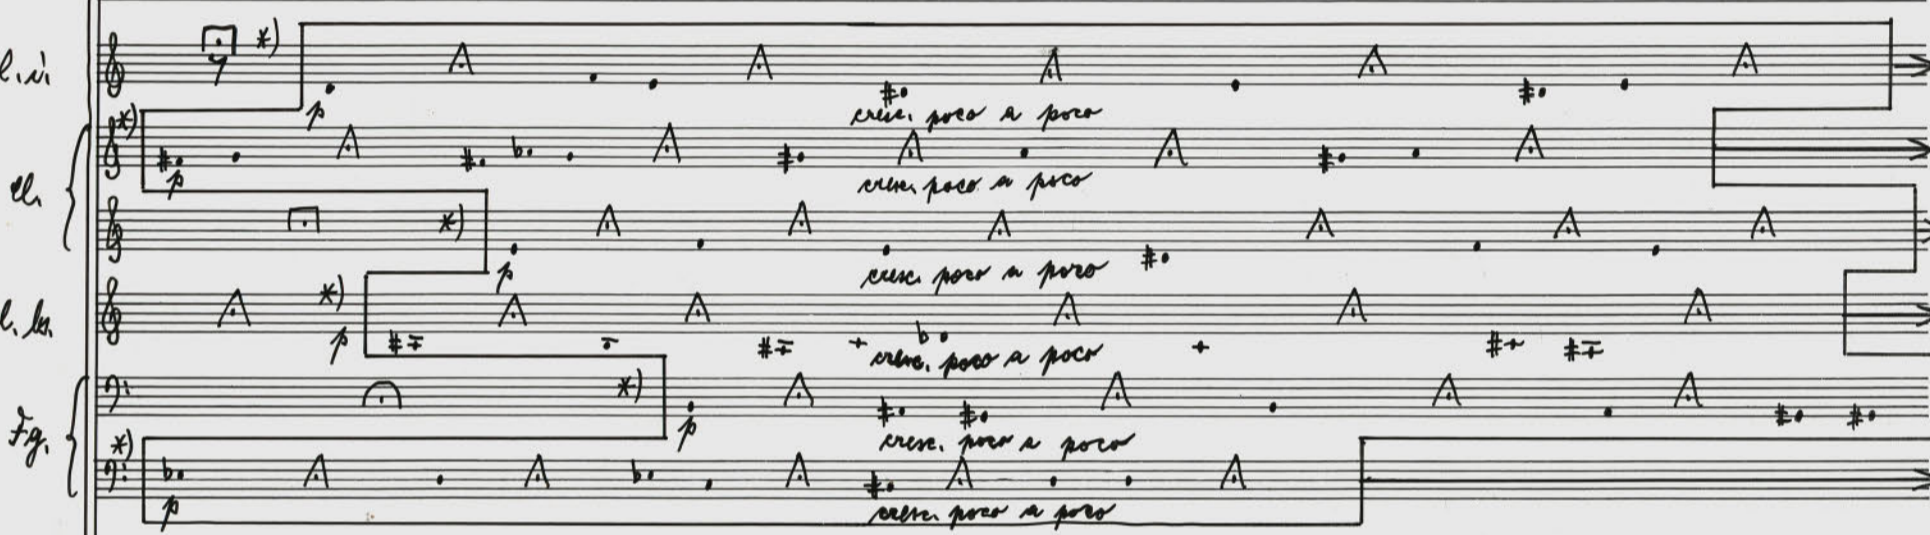 l. i. *)
p cresc. poco a poco
*)
Cl. p cresc. poco a poco
*)
p cresc. poco a poco
l. bs. *)
p cresc. poco a poco
*)
Fg. p cresc. poco a poco
*)
p cresc. poco a poco